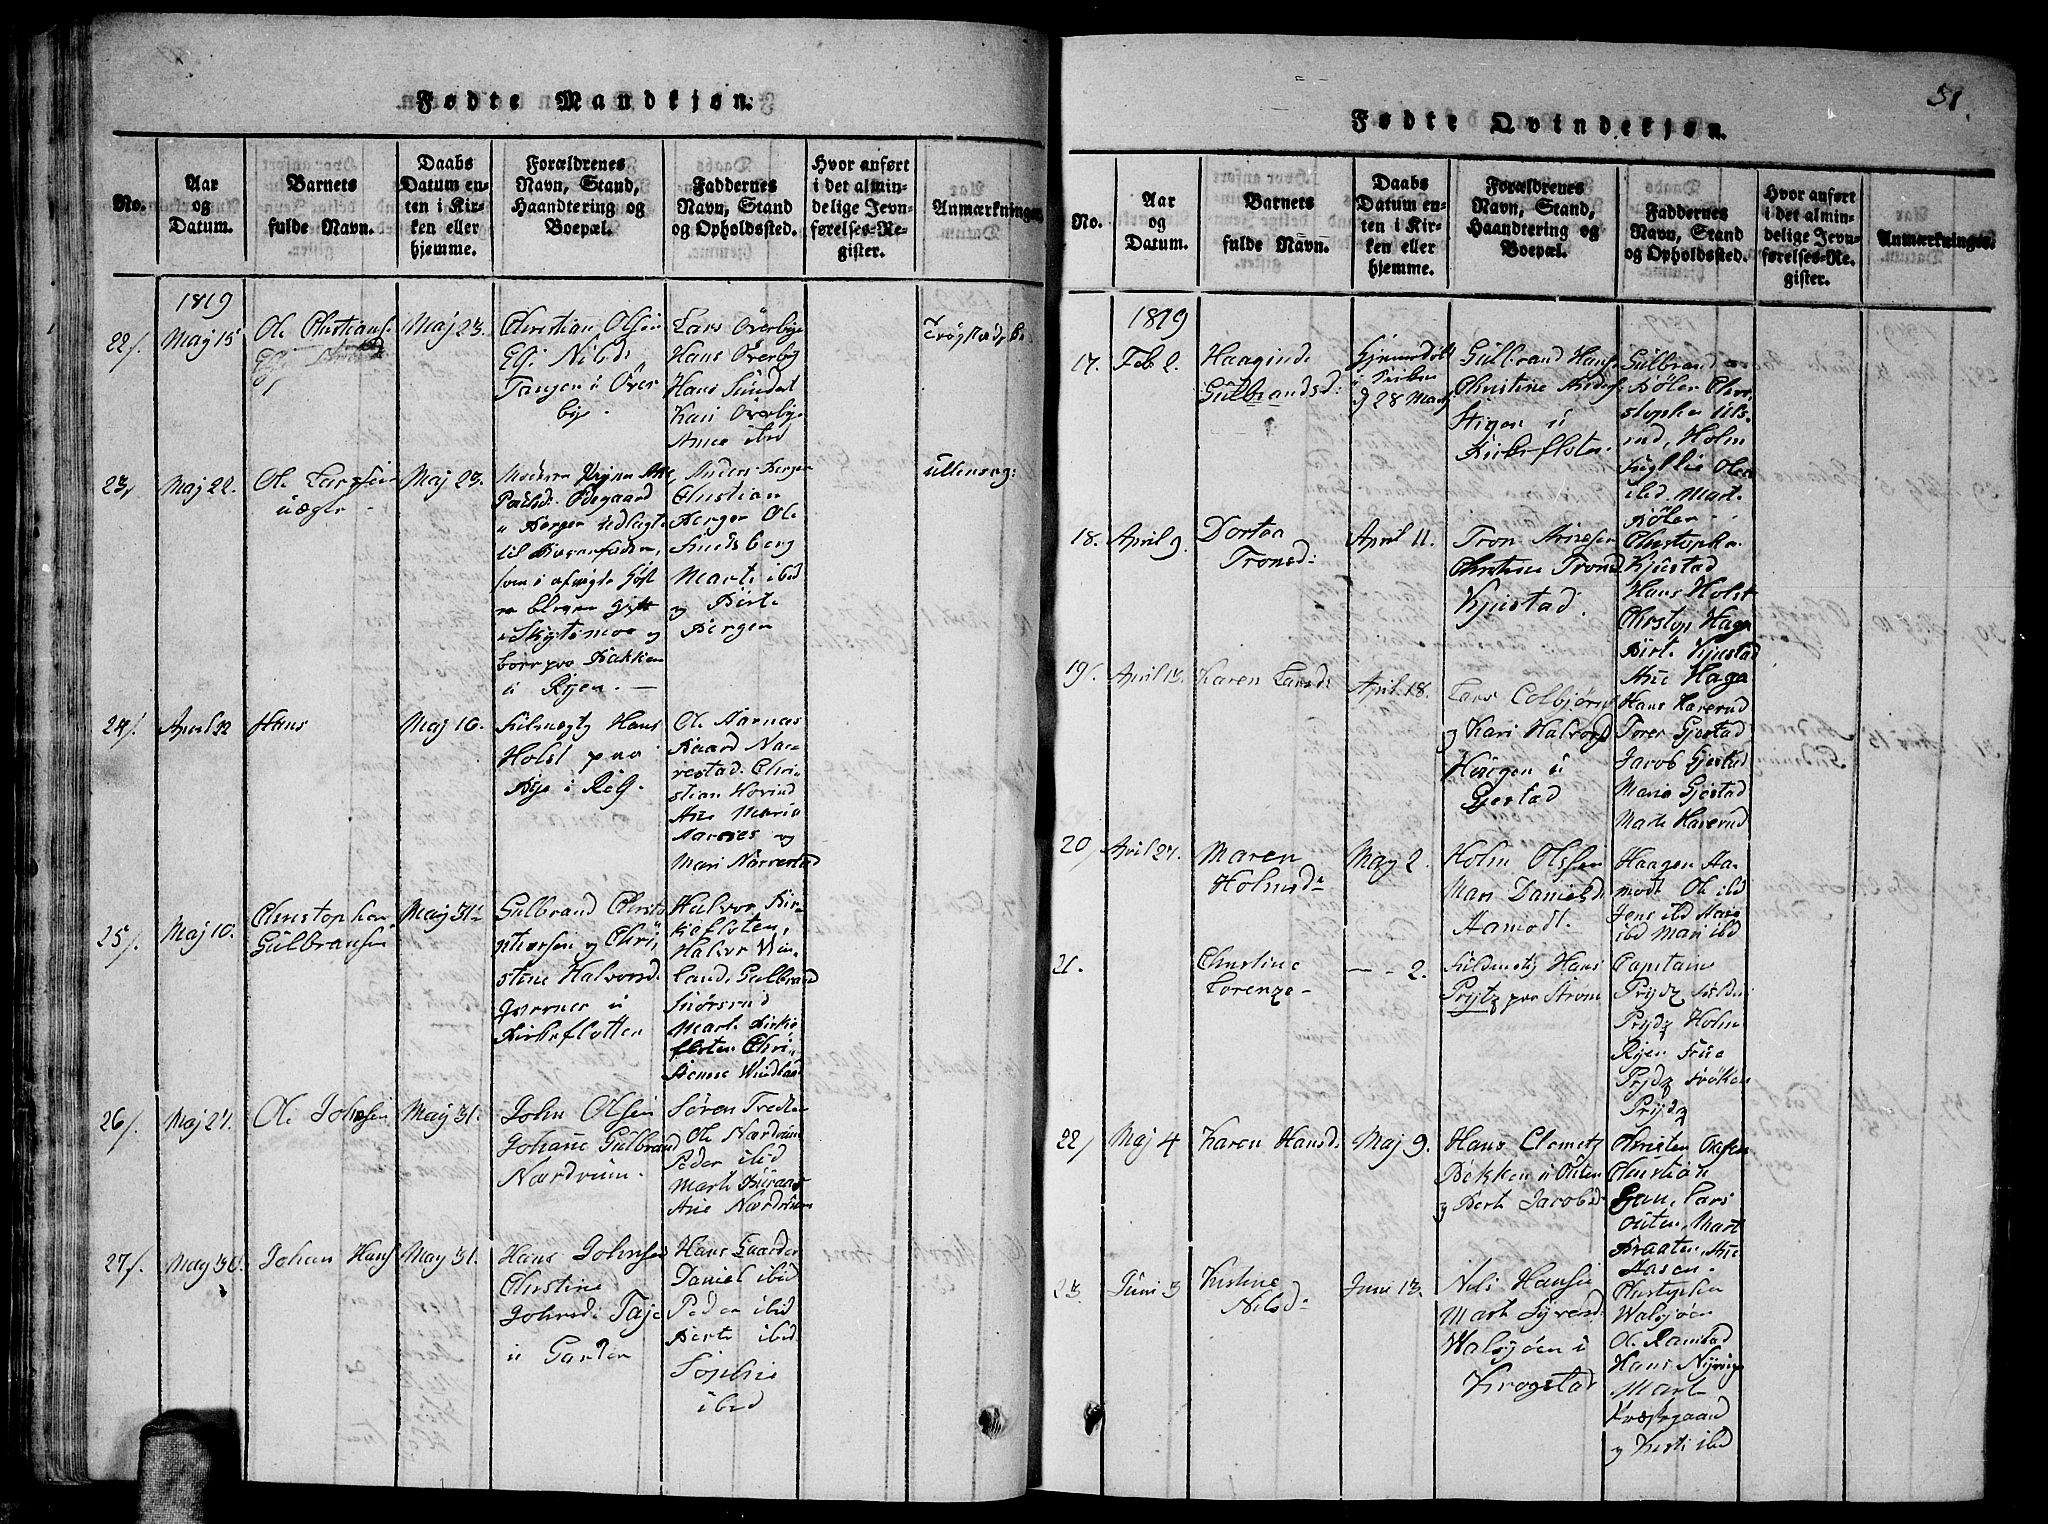 Fødte Mandkjøn.
No.
Aar
og
Datum.
Barnets
fulde Navn.
Daabs
Datum en-
ten i Kir-
ken eller
hjemme.
Forældrenes
Navn, Stand,
Haandtering og
Boepæl.
Faddernes
Navn, Stand
og Opholdssted.
Hvor anført
i det almin-
delige Jevn-
førelses-Re-
gister.
Anmærkninger.
1819
22/.
May 15
Ole Christians.
Maj 23.
Christian Olsen
Nilsd:
Tangen u Over
bye.
Lars Overbye
Hans Overby
Hans
Kari Overbye
Anne ibid
23/.
Maj 22.
Ole Larsen
uægte -
Maj 23.
Moderen Pigen Ane
Paulsd. Ødegaard
Berger udlagte
til Barnefader,
som i afvigte Høst
bleven gift
i Skytemoe og
boer paa Bakken
u Ryen. —
Anders Berger
Christian
Berger Ole
Smedsberg
Marte ibid
og Berte
Berger
Ullensag:
24/.
April 22
Hans
Maj 16.
Fuldmegtig Hans
Holst paa
Bye i
Ole Aarnæs
Baard Nar-
restad. Chri-
stian Horind
Ane Maria
Aarnes og
Mari Narrestad
25/.
Maj 10.
Christopher
Gulbransen
May 31.
Gulbrand Christo
phersen og Chri-
stine Halvorsd.
Qværner u
Kirkeflotten
Halvor Kir-
keflotten,
Halvor Win-
land, Gulbrand
Snorsrud
Mart. Kirke
flotten Chri-
stense Windland
26/.
Maj 27.
Ole Johnsen
May 31.
John Olsen
Johane Gulbrand
Nordrum.
Søren
Ole Nordrum
Peder ibid
Marte
Ane Nordrum
27/.
May 30.
Johan Hans
May 31.
Hans Johnsen
Christine
Johnsd. Taje
u Garder
Hans Gaarder
Daniel ibid
Peder ibid
Berte ibid
Sophie
ibid
31.
Fødte Qvindekjøn.
No.
Aar
og
Datum.
Barnets
fulde Navn.
Daabs
Datum en-
ten i Kir-
ken eller
hjemme.
Forældrenes
Navn, Stand,
Haandtering og
Boepæl.
Faddernes
Navn, Stand
og Opholdssted.
Hvor anført
i det almin-
delige Jevn-
førelses-Re-
gister.
Anmærkninger.
1819
17.
Feb 2.
Haaginde
Gulbrandsd:
Hjemmedøbt
i Kirken
d 28 Marts
Gulbrand Hans.
Christine Anders.
Stigen u
Kirkeflotten.
Gulbrand
Bøler Chri-
stopher Uls-
rud, Holm
Fugllie Olea
ibid. Mart.
Bøler.
18.
April 9.
Dortea
Tronsd:
April 11.
Tron Arnesen
Christine Tronsd
Kjustad.
Christopher
Kjustad
Hans Holst
Christop Haga
Birt. Kjustad
Ane Haga
19/.
April 13.
Karen Larsd:
April 18.
Lars Colbjørns
og Kari Halvorsd
Haugen u
Gjestad
Hans Harerud
Torer Gjestad
Jacob Gjestad
Maria Gjestad
Marte Harerud
20/
April 27.
Maren
Holmsd:
May 2.
Holm Olsen
Mari Danielsd
Aamodt.
Haagen Aa-
modt Ole ibid
Jens ibid Marie
ibid Mari ibd
21.
Christine
Lorenze-
- - 2.
Fuldmegtig Hans
Prytz paa Strøm
Capitain
Prydz
Prydz Holm
Ryen Frue
Prydz Frøken
Prydz
22/
Maj 4
Karen Hansd.
Maj 9.
Hans Clemets
Bakken u Outen
og Berte Jacobsd
Christen
Christian
Lars
Outen, Mart
Braaten, Ane
Aasen.
23.
Juni 3
Kirstine
Nilsd:
Juni 13.
Nils Hansen
Marte Syversd.
Walsjøen i
Krogstad
Christopher
Walsjøen
Ole Ramstad
Hans
Mart
Præstegaard
og Kirsti ibid